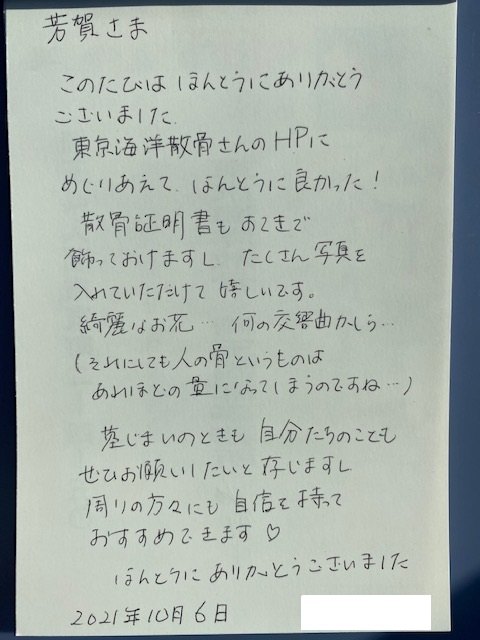 芳賀さま
このたびは ほんとうにありがとう
ございました.
東京海洋散骨さんのHPに
めぐりあえて. ほんとうに良かった!
散骨証明書も すてきで
飾っておけますし. たくさん写真を
入れていただけて 嬉しいです。
綺麗なお花… 何の交響曲かしら…
(それにしても人の骨というものは
あれほどの量になってしまうのですね…)
墓じまいのときも 自分たちのことも
ぜひお願いしたいと 存じますし
周りの方々にも 自信を持って
おすすめできます♡
ほんとうに ありがとうございました
2021年10月6日